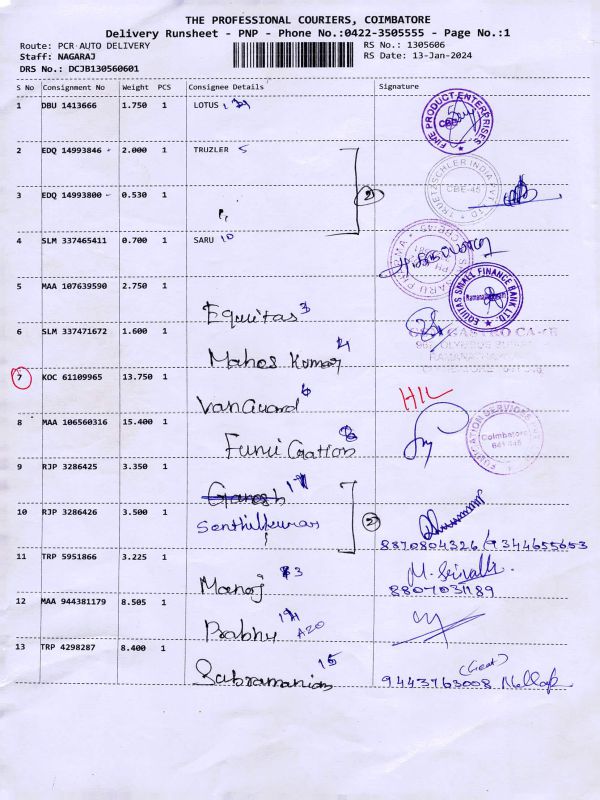 THE PROFESSIONAL COURIERS, COIMBATORE
Delivery Runsheet - PNP - Phone No.:0422-3505555 - Page No.:1
Route: PCR AUTO DELIVERY
RS No.: 1305606
Staff: NAGARAJ
RS Date: 13-Jan-2024
DRS No.: DCJB130560601
S No Consignment No Weight PCS Consignee Details Signature
1 DBU 1413666 1.750 1 LOTUS
FINE PRODUCT ENTERPRISES
2 EDQ 14993846 2.000 1 TRUZLER 5
CBE-45
3 EDQ 14993800 0.530 1
2
4 SLM 337465411 0.700 1 SARU 10
5 MAA 107639590 2.750 1
Equitas 3
EQUITAS SMALL FINANCE BANK LTD
Ramanathapuram
6 SLM 337471672 1.600 1
Mahes Kumar
7 KOC 61109965 13.750 1
Vanguard 6
HIL
8 MAA 106560316 15.400 1
Funii Cration
Coimbatore
641 045
9 RJP 3286425 3.350 1
Ganesh
10 RJP 3286426 3.500 1
Senthilkumar
2
8870804326/9344655653
11 TRP 5951866 3.225 1
Manoj 3
M. Srivalli
8807031189
12 MAA 944381179 8.505 1
Prabhu
A20
13 TRP 4298287 8.400 1
Subramanian 15
9443763008